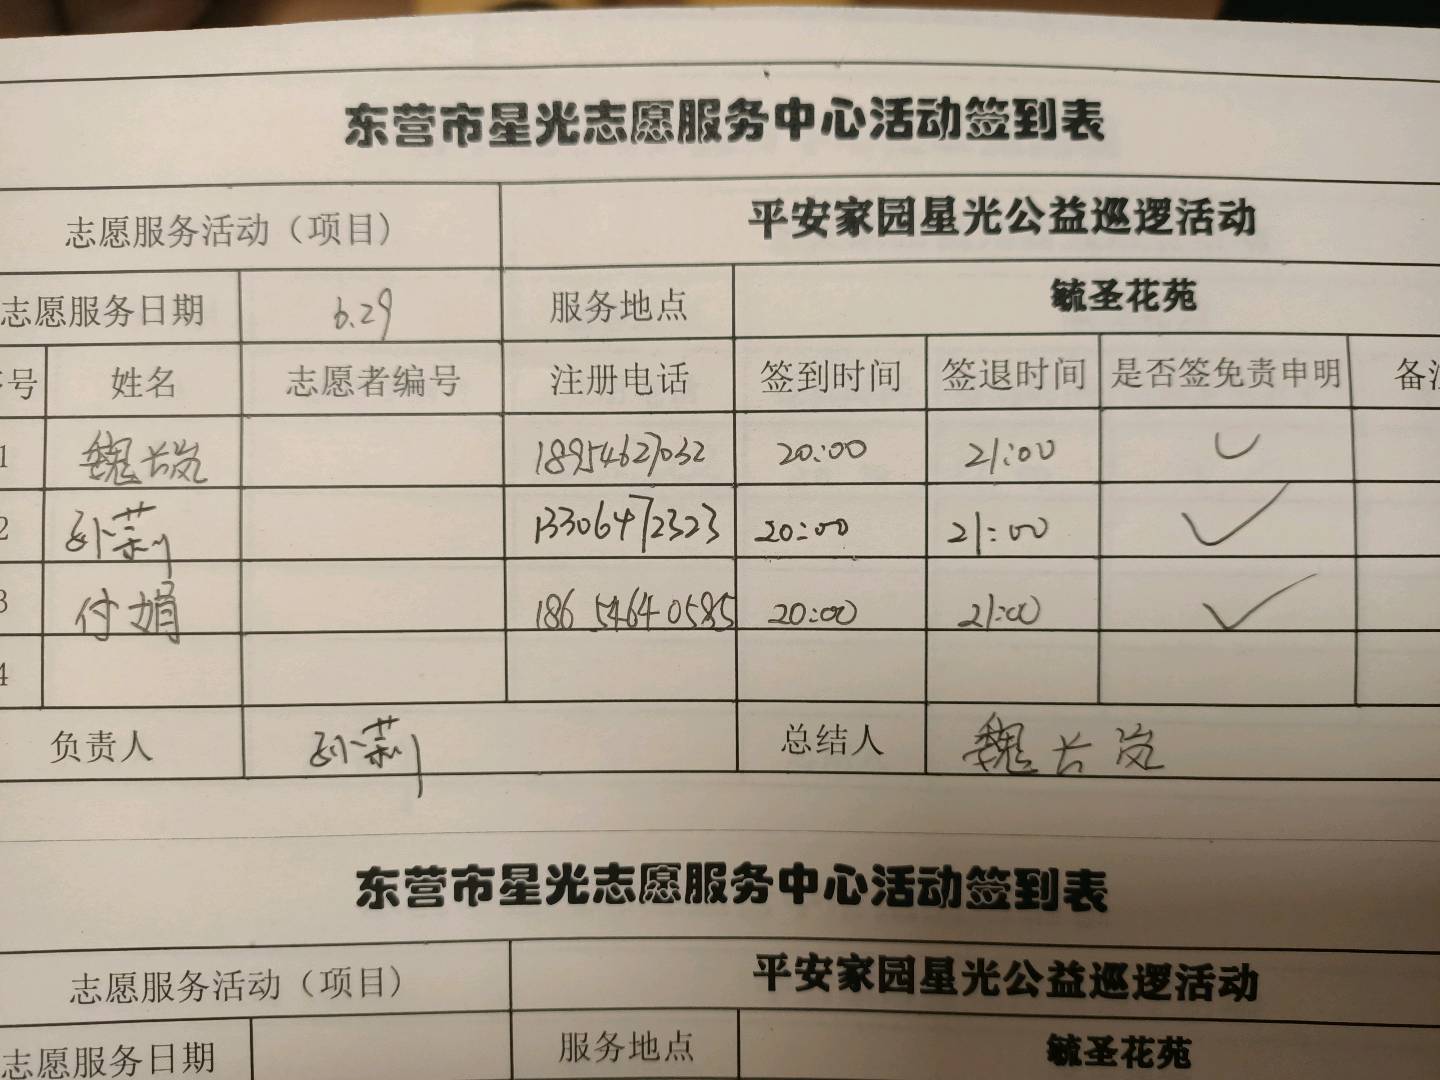 东营市星光志愿服务中心活动签到表
志愿服务活动（项目） 平安家园星光公益巡逻活动
志愿服务日期 6.29 服务地点 毓圣花苑
号 姓名 志愿者编号 注册电话 签到时间 签退时间 是否签免责申明 备注
1 魏长岚 18954627032 20:00 21:00
2 孙莉 13306472323 20:00 21:00
3 付娟 186 5464 0585 20:00 21:00
4
负责人 孙莉 总结人 魏长岚
东营市星光志愿服务中心活动签到表
志愿服务活动（项目） 平安家园星光公益巡逻活动
志愿服务日期 服务地点 毓圣花苑